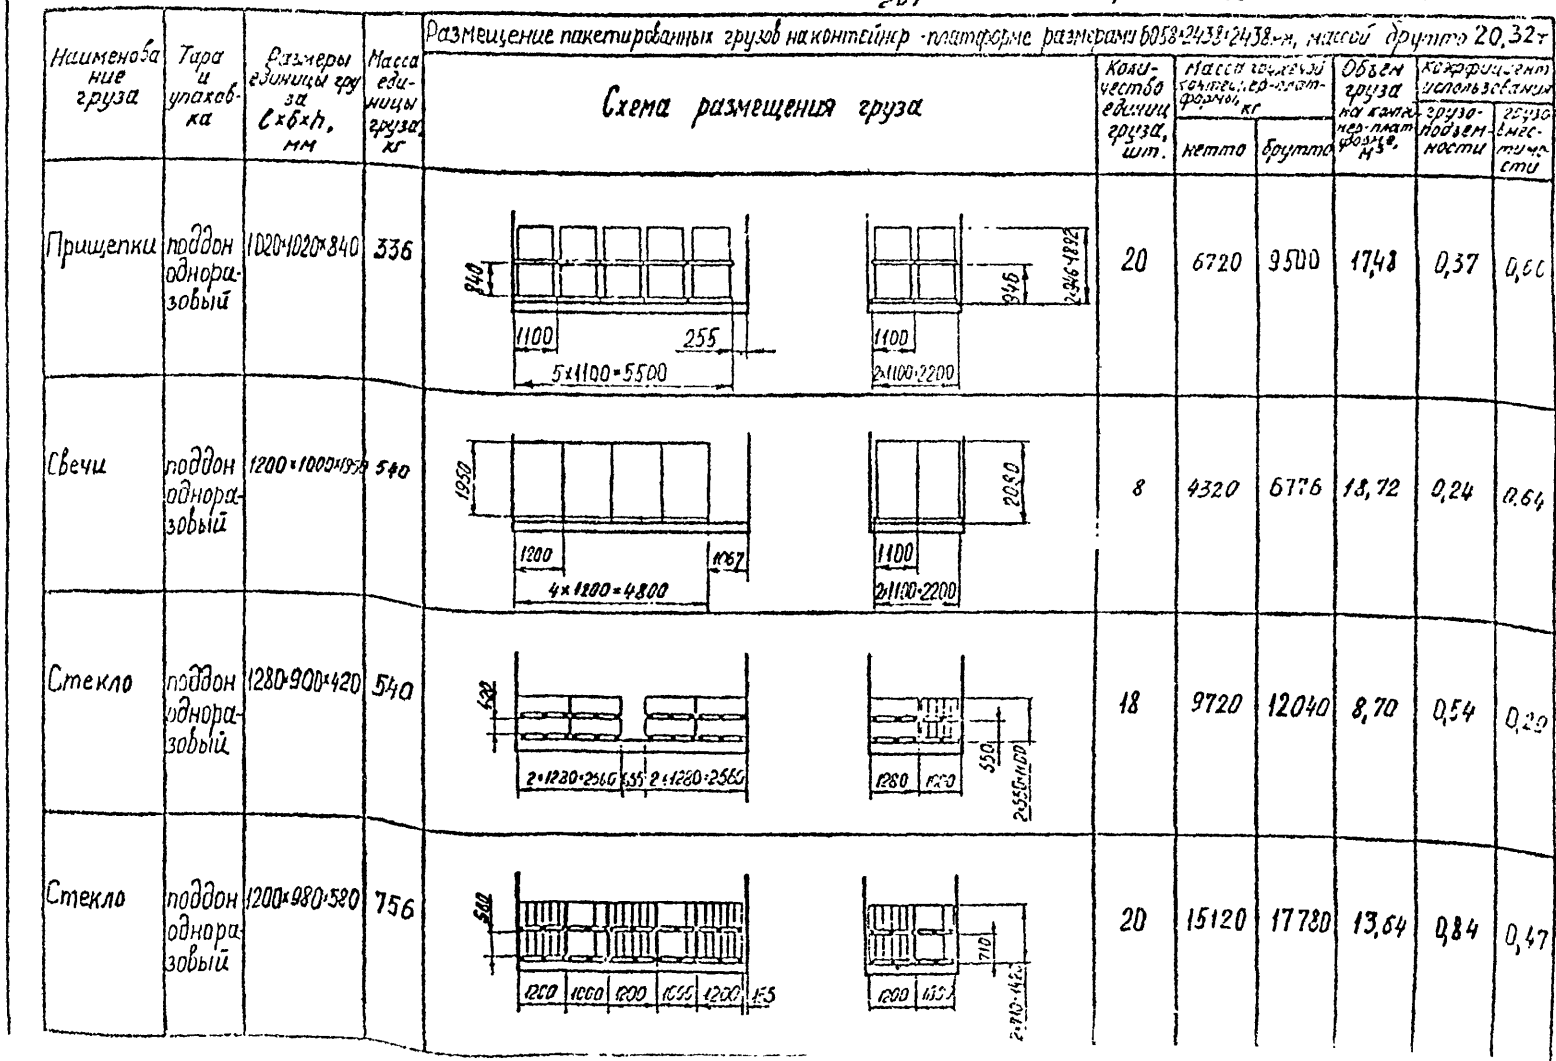 Размещение пакетированных грузов на контейнер-платформе размерами 6058×2438×2438мм, массой брутто 20,32т
Наименова
ние
груза
Тара
и
упаков-
ка
Размеры
единицы гру
за
ℓ×б×h,
мм
Масса
еди-
ницы
груза,
кг
Схема размещения груза
Коли-
чество
единиц
груза,
шт.
Масса
контейнер-плат-
формы,
кг
нетто
брутто
Объем
груза
на контей-
нер-плат
форме,
м³
Коэффициент
использования
грузо-
подъем-
ности
грузо
вмес-
тимо-
сти
Прищепки
поддон
однора-
зовый
1020×1020×840
336
840
1100
255
5×1100=5500
1100
2×1100=2200
946
2×946=1892
20
6720
9500
17,48
0,37
Свечи
поддон
однора-
зовый
1200×1000×1950
540
1950
1200
1067
4×1200=4800
1100
2×1100=2200
2080
8
4320
6776
18,72
0,24
0,64
Стекло
поддон
однора-
зовый
1280×900×420
540
420
2×1280=2560
2×1280=2560
1280
550
2×550=1100
18
9720
12040
8,70
0,54
0,29
Стекло
поддон
однора
зовый
1200×980×580
756
580
1200
1000
1200
1200
1200
710
2×710=1420
20
15120
17780
13,64
0,84
0,47